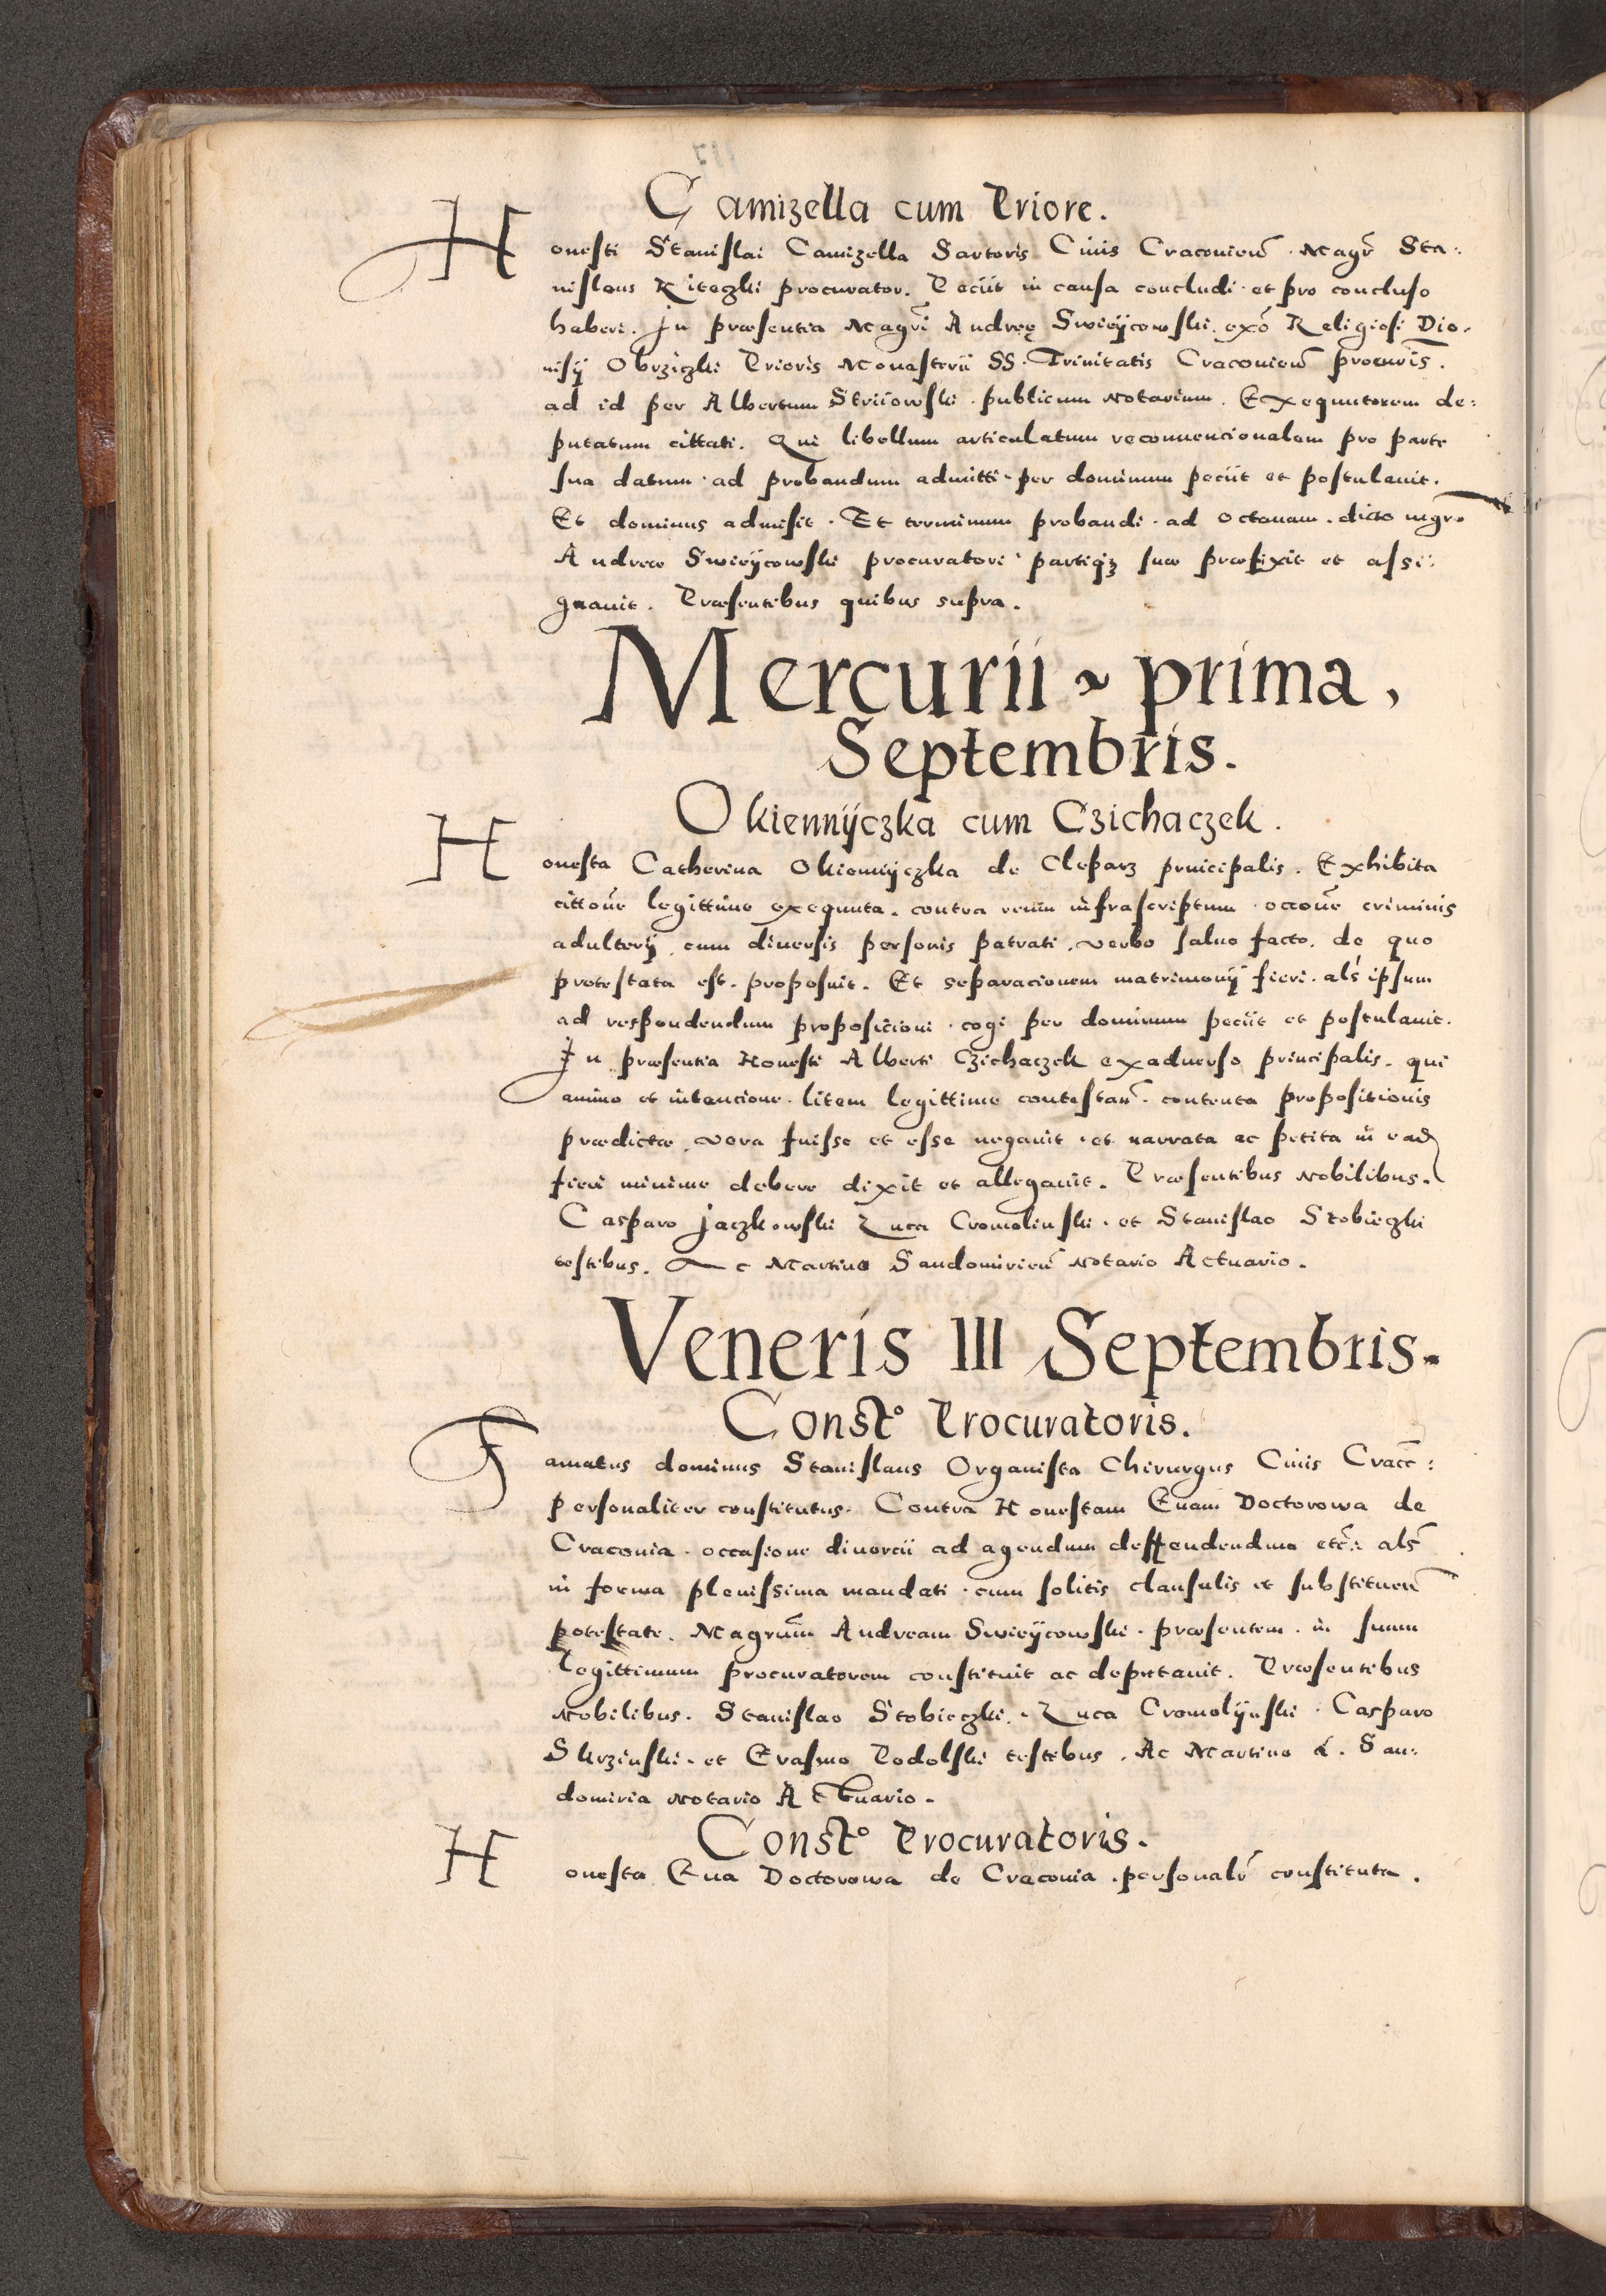 Camizella cum Priore.
Honesti Stanislai Camizella Sartoris Ciuis Cracouien̄. Magr̄ Sta:
nislaus Kiteczki procurator. Peciit in causa concludi. et pro concluso
haberi. In præsentia Magrī Andreę Swieÿcowski. exō Religiosi Dio.
nisÿ Obrziczki Prioris Monasterii SS. Trinitatis Cracouien̄ procuris̄.
ad id per Albertum Striiowski. publicum Notarium. Exequutorem de:
putatum cittati. Qui libellum articulatum reconuencionalem pro parte
sua datum. ad probandum admitti. per dominum peciit et postulauit.
Et dominus admisit. Et terminum probandi. ad Octauam. dicto mgro
Andreæ Swieÿcowski procuratori partiqz suæ præfixit et assi:
gnauit. Præsentibus quibus supra.
Mercurii ~ prima,
Septembris.
Okiennÿczka cum Czichaczek.
Honesta Catherina Okiennÿczka de Cleparz principalis. Exhibita
cittoūe legittime exequuta. contra reum infrascriptum. occoūe criminis
adulterÿ. cum diuersis personis patrati. verbo saluo facto. de quo
protestata est. proposuit. Et separacionem matrimonÿ fieri. als̄ ipsum
ad respondendum proposicioni. cogi per dominum peciit et postulauit.
In præsentia Honesti Alberti Czichaczek exaduerso principalis. qui
animo et intencione. litem legittime contestan̄. contenta propositionis
prædictæ. vera fuisse et esse negauit. et narrata ac petita in ead
fieri minime debere dixit et allegauit. Præsentibus Nobilibus.
Casparo Jaczkowski Luca Cromolinski. et Stanislao Stobieczki
testibus. Ac Martino Sandomirien̄ Notario Actuario.
Veneris III Septembris.
Const° Procuratoris.
Famatus dominus Stanislaus Organista Chirurgus Ciuis Cracc̄:
personaliter constitutus. Contra Honestam Euam Doctorowa de
Craconia. occasione diuorcii ad agendum deffendendum etc̄: als̄
in forma plenissima mandati. cum solitis clausulis et substituen̄
potestate. Magrum̄ Andream Swieÿcowski. præsentem. in suum
Legittimum procuratorem constituit ac deputauit. Præsentibus
Nobilibus. Stanislao Stobieczki. Luca Cromolÿnski. Casparo
Skrzinski. et Erasmo Podolski testibus. Ac Martino à. San:
domiria Notario Actuario.
Const° Procuratoris.
Honesta Eua Doctorowa de Craconia. personalr̄ constituta.